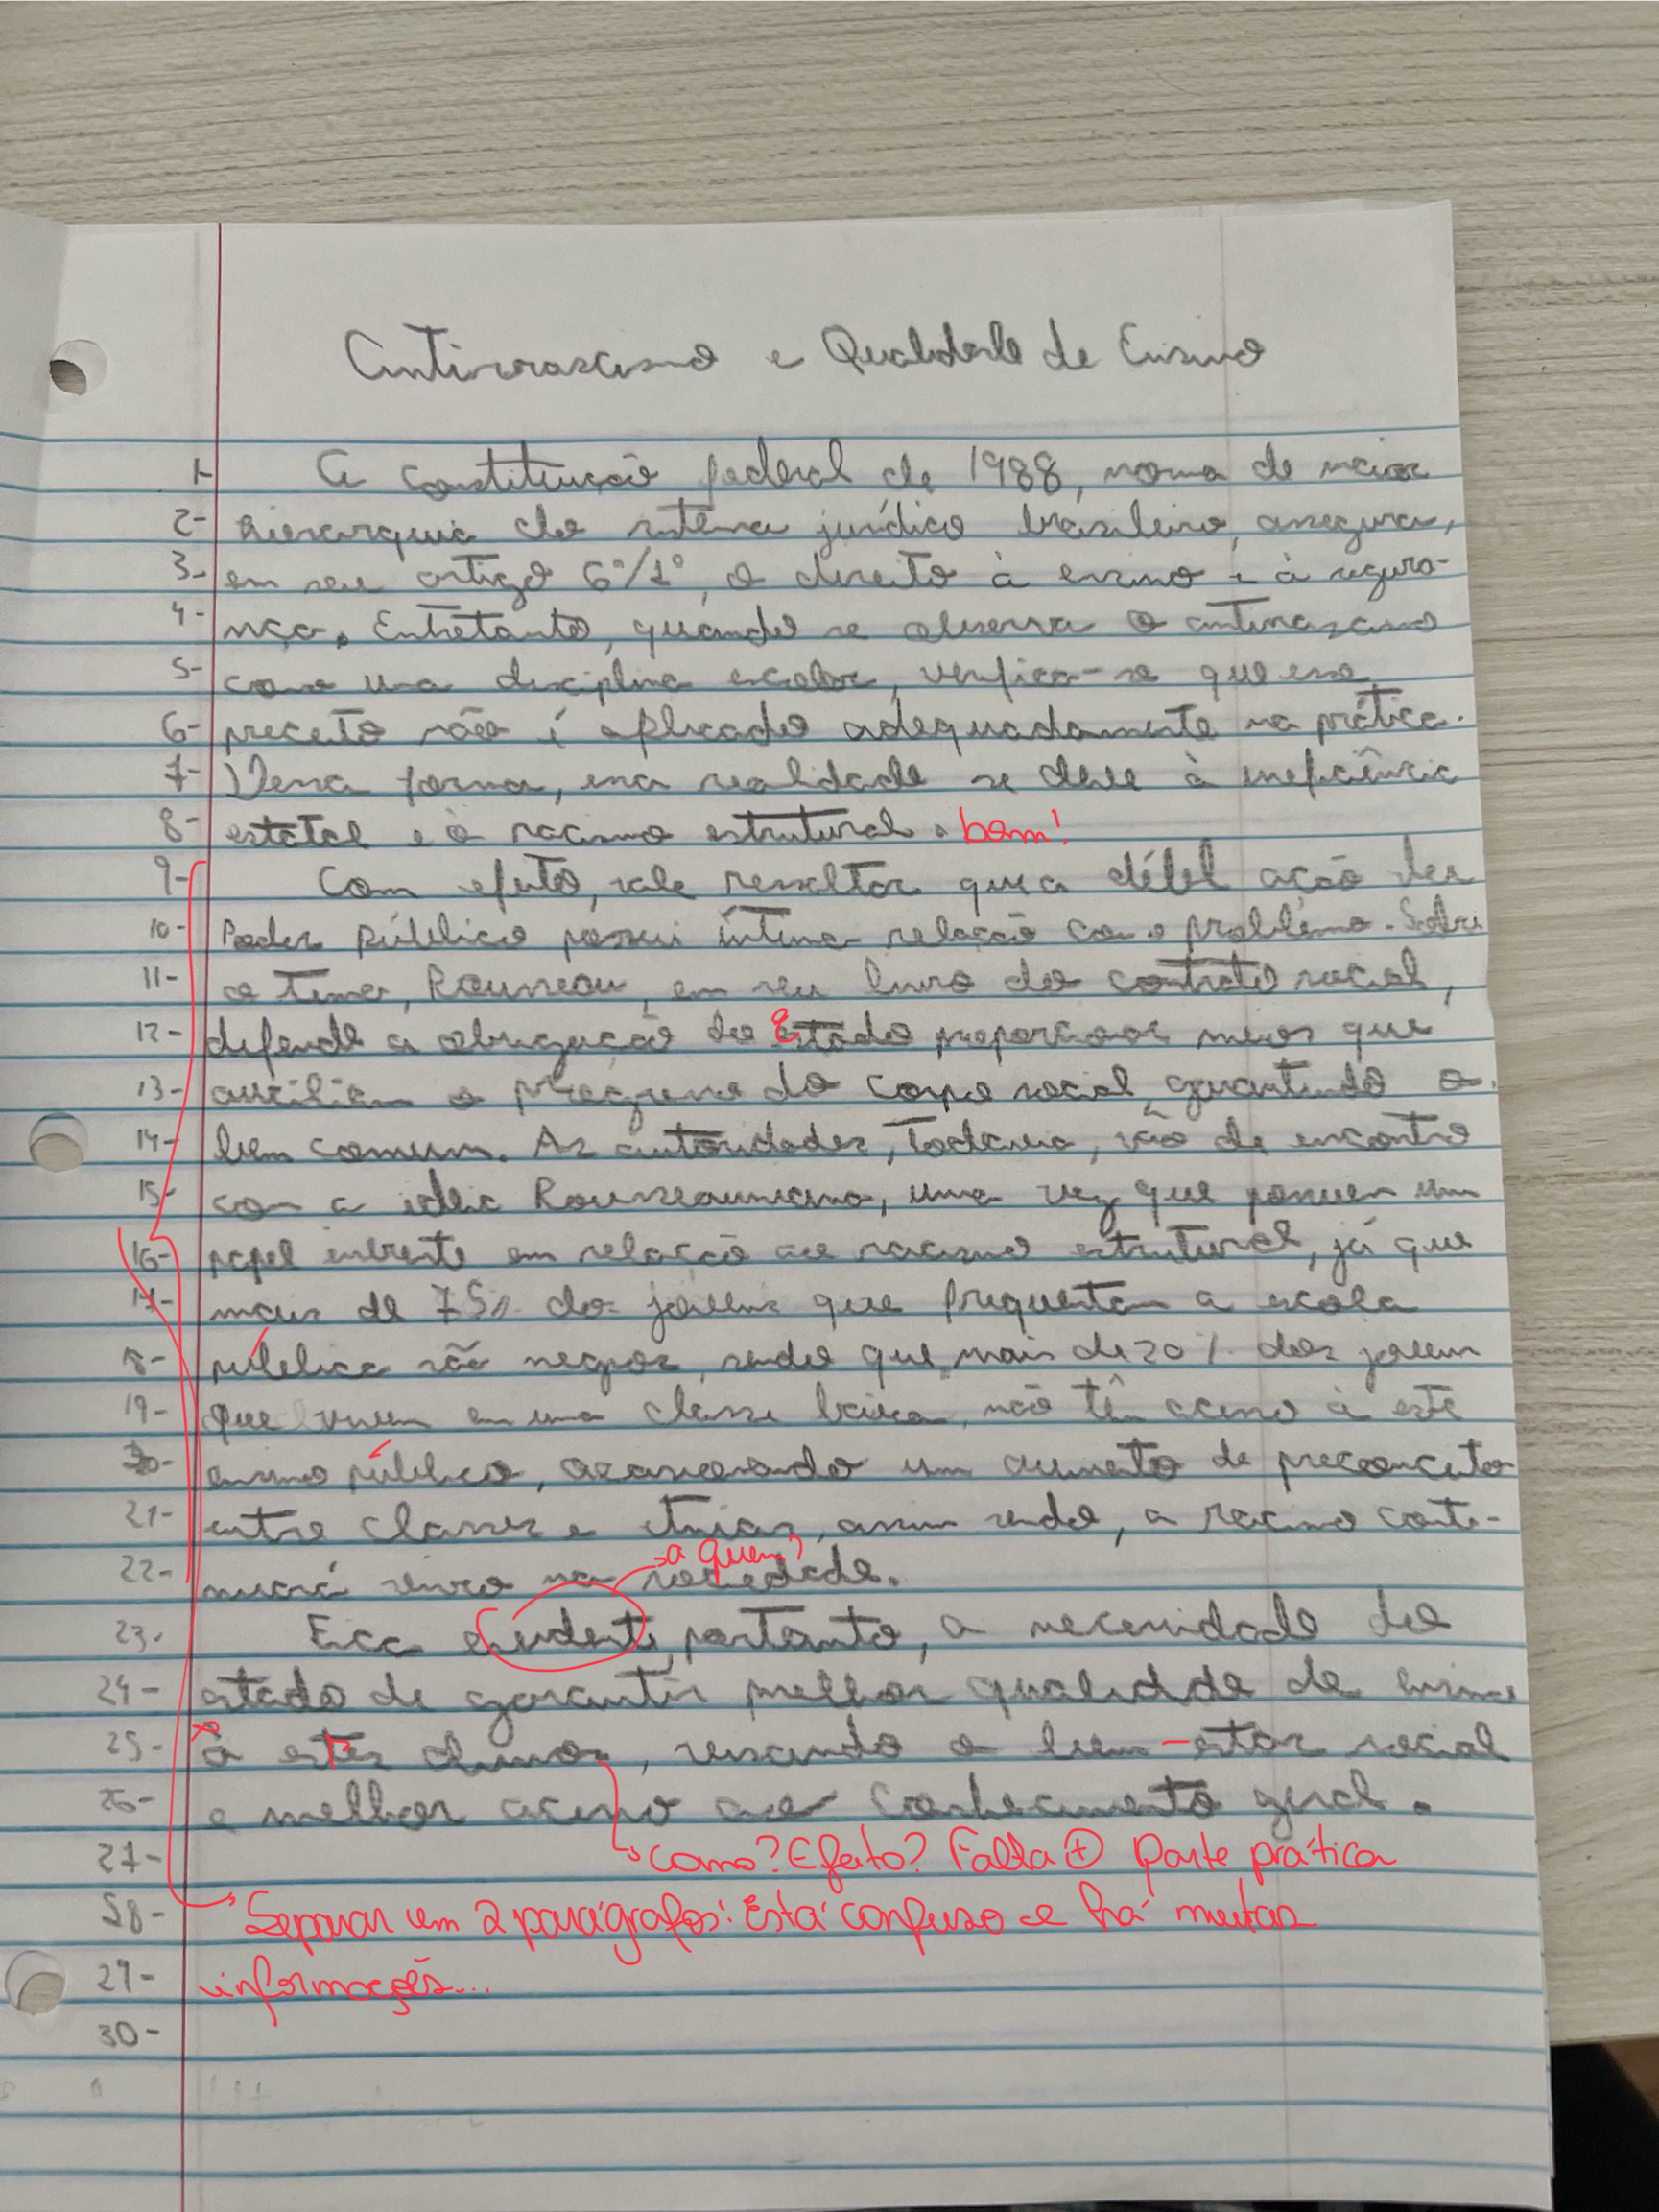 Antirracismo e Qualidade de Ensino
1- A constituição federal de 1988, norma de maior
2- hierarquia do sistema jurídico brasileiro, assegura,
3- em seu artigo 6º/1º, o direito à ensino e à segura-
4- nça. Entretanto, quando se observa o antirracismo
5- como uma disciplina escolar, verifica-se que esse
6- preceito não é aplicado adequadamente na prática.
7- Dessa forma, essa realidade se deve à ineficiência
8- estatal e o racismo estrutural. bom!
9- Com efeito, vale ressaltar que a débil ação do
10- Poder público possui íntima relação com o problema. Sobre
11- o tema, Rousseau, em seu livro do contrato social,
12- defende a obrigação do estado proporcionar meios que
13- auxiliem o progresso do corpo social, garantindo o
14- bem comum. As autoridades, todavia, vão de encontro
15- com a ideia Rousseauniana, uma vez que possuem um
16- papel em relação ao racismo estrutural, já que
17- mais de 75% dos jovens que frequentam a escola
18- pública são negros, sendo que mais de 20% dos jovens
19- que vivem em uma classe baixa, não têm acesso à este
20- ensino público, um aumento de preconceito
21- entre classes e etnias, assim sendo, o racismo conti-
22- nuará vivo na sociedade.
→ a quem?
23- Fica evidente, portanto, a necessidade do
24- estado de garantir melhor qualidade de ensino
25- à estes alunos, visando o bem-estar social
26- e melhor acesso ao conhecimento geral.
27- → como? Efeito? Falta + parte prática
28- → Separar em 2 parágrafos: Está confuso e há muitas
29- informações...
30-